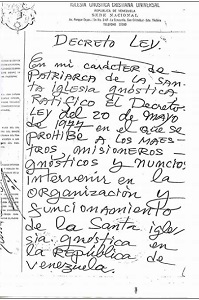 IGLESIA GNOSTICA CRISTIANA UNIVERSAL
REPUBLICA DE VENEZUELA
SEDE NACIONAL
DECRETO LEY.
En mi carácter de
PATRIARCA DE LA SAN-
ta iglesia gnóstica
Ratifico el Decreto-
Ley del 20 de mayo
en el que se
PROHIBE A LOS MAES-
TROS, MISIONEROS-
GNÓSTICOS y NUNCIOS
intervenir en la
organización y
funcionamiento
de la Santa igle-
sia gnóstica en
la República de
Venezuela.